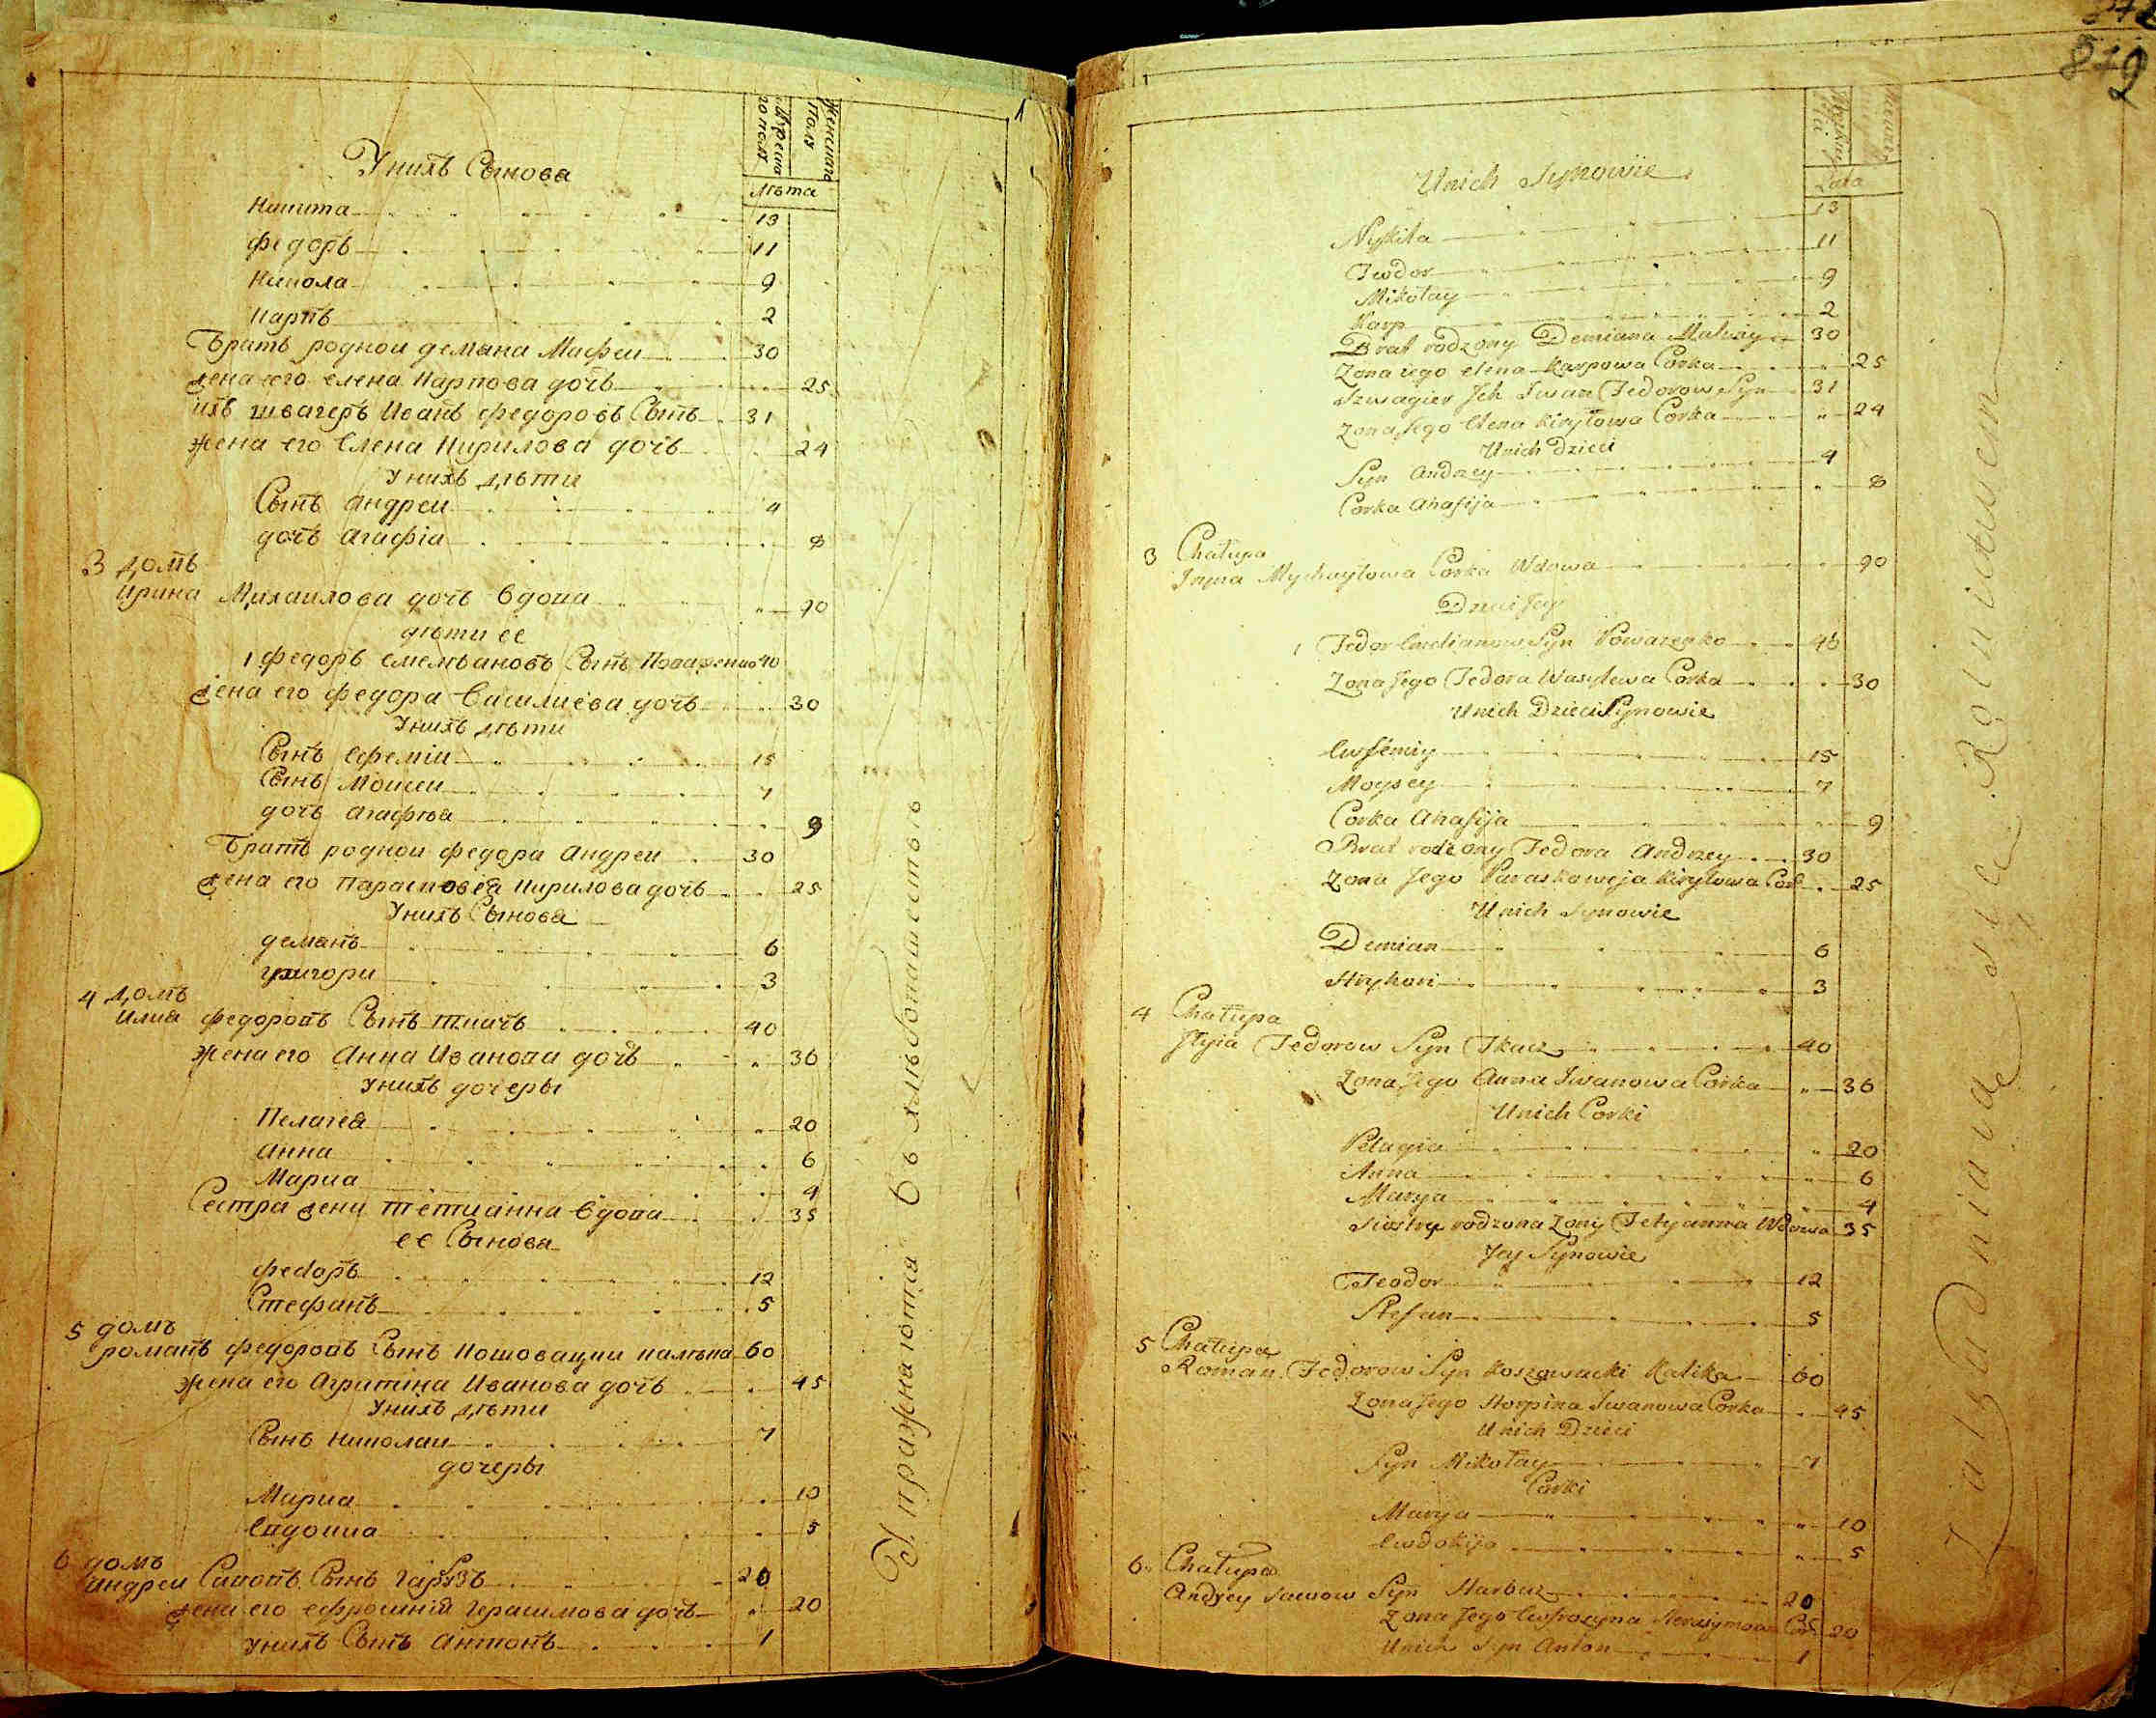 мужеска
го полу
женска
полу
лѣта
Унихъ Сынова
Никита 13
федоръ 11
Никола 9
Карпъ 2
Братъ роднои демяна Мафеи 30
жена его елена Карпова дочь 25
ихъ швагеръ Иванъ федоровъ Сынъ 31
жена его Елена Кирилова дочь 24
Унихъ дѣти
Сынъ андреи 4
дочь агафіа 8
3 домъ
Ирина Михаилова дочь вдова 90
дѣти ее
1 федоръ емельановъ Сынъ Поваренко 40
жена его федора Василиева дочь 30
Унихъ дѣти
Сынъ Ефеміи 15
Сынъ Моисеи 7
дочь агафіа 9
Братъ роднои федора андреи 30
жена его Парасковеа Кирилова дочь 25
Унихъ Сынова
демянъ 6
григори 3
4 домъ
илиа федоровъ Сынъ ткачъ 40
жена его Анна Иванова дочь 36
Унихъ дочеры
Пелагеа 20
анна 6
Мариа 4
Сестра жени тетианна вдова 35
ее Сынова
феdоръ 12
Стефанъ 5
5 домъ
романъ федоровъ Сынъ Кошовацки калѣка 60
жена его Агрипина Иванова дочь 45
Унихъ дѣти
Сынъ николаи 7
дочеры
Мариа 10
Евдокиа 5
6 домъ
андреи Савовъ Сынъ гарбузъ 20
жена его ефросиніа герасимова дочь 20
унихъ Сынъ антонъ 1
Упражнаются въ хлѣбопашествѣ
872
Lata
Unich Synowie
Nykita 13
Teodor 11
Mikołay 9
Karp 2
Brat rodzony Demiana Matwiy 30
Zona iego elena Karpowa Corka 25
Szwagier Jch Jwan Fedorow Syn 31
Zona Jego Elena Kiryłowa Corka 24
Unich Dzieci
Syn Andrzey 4
Corka Ahafija 8
3 Chałupa
Jryna Mychayłowa Corka Wdowa 90
Dzieci Jey
1 Fedor Emelianow Syn Powarenko 40
Zona Jego Fedora Wasylewa Corka 30
Unich Dzieci Synowie
Ewfemiy 15
Moysey 7
Corka Ahafija 9
Brat rodzony Fedora Andrzey 30
Zona Jego Paraskowija Kiryłowa Cor 25
Unich Synowie
Demian 6
Hryhori 3
4 Chałupa
Jlyia Fedorow Syn Tkacz 40
Zona Jego Anna Jwanowa Corka 36
Unich Corki
Pelagia 20
Anna 6
Marya 4
Siostra rodzona Zony Tetyanna Wdowa 35
Jey Synowie
Teodor 12
Stefan 5
5 Chałupa
Roman Fedorow Syn Koszowacki Kalika 60
Zona Jego Horpina Jwanowa Corka 45
Unich Dzieci
Syn Mikołay 7
Corki
Marya 10
Ewdokija 5
6 Chałupa
Andrey Sawow Syn Harbuz 20
Zona Jego Ewfrozyna Herasymowa Cor 20
Unich Syn Anton 1
Zatrudniaią się Rolnictwem